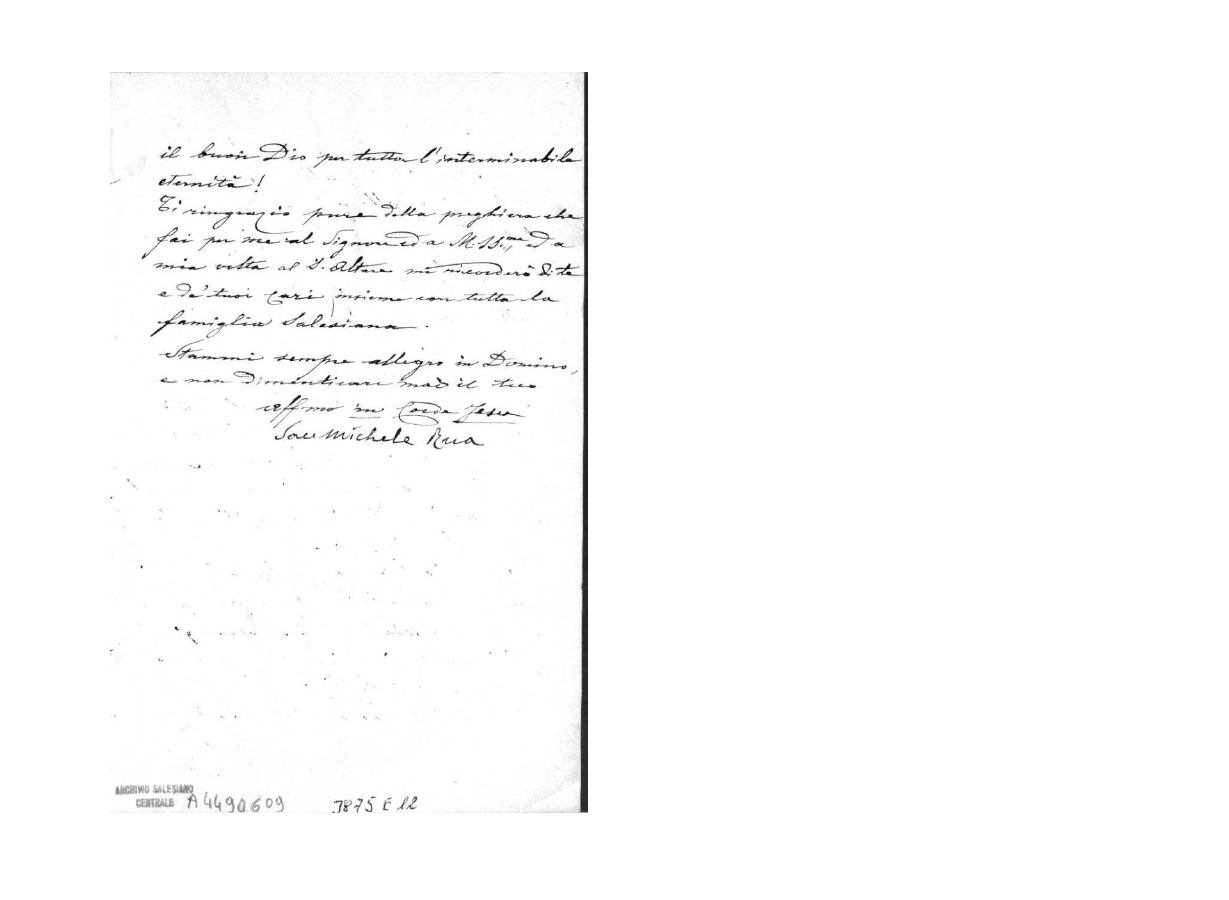 il buon Dio per tutta l'interminabile
eternità!
Ti ringrazio pure della preghiera che
fai per me al Signore ed a M. SS.ma, ed a
mia volta al S. Altare mi ricorderò di te
e de' tuoi cari insieme con tutta la
famiglia Salesiana.
Stammi sempre allegro in Domino,
e non dimenticare mai il tuo
Aff.mo in Corde Jesu
Sac Michele Rua
ARCHIVIO SALESIANO
CENTRALE A4490609 3875 E 12